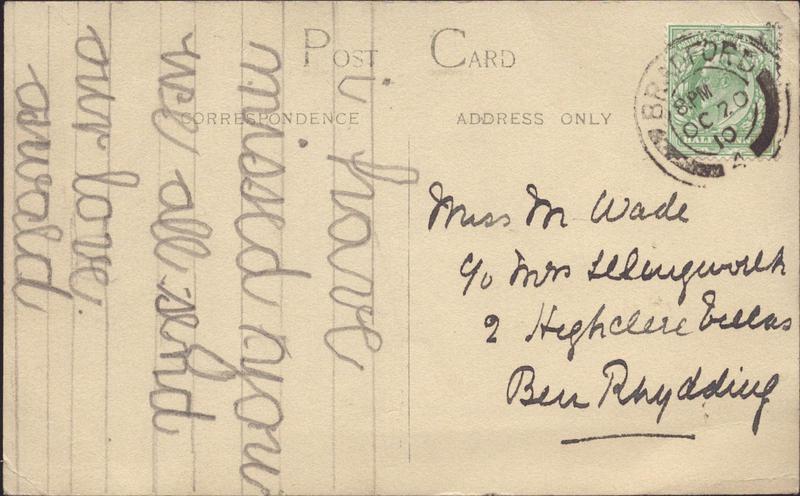 POST CARD
CORRESPONDENCE
ADDRESS ONLY
BRADFORD
8 PM
OC 20
10
4
HALF PENNY
i have
missed you
we all send
our love
oswald
Miss M Wade
c/o Mrs Illingworth
2 Highclere Villas
Ben Rhydding